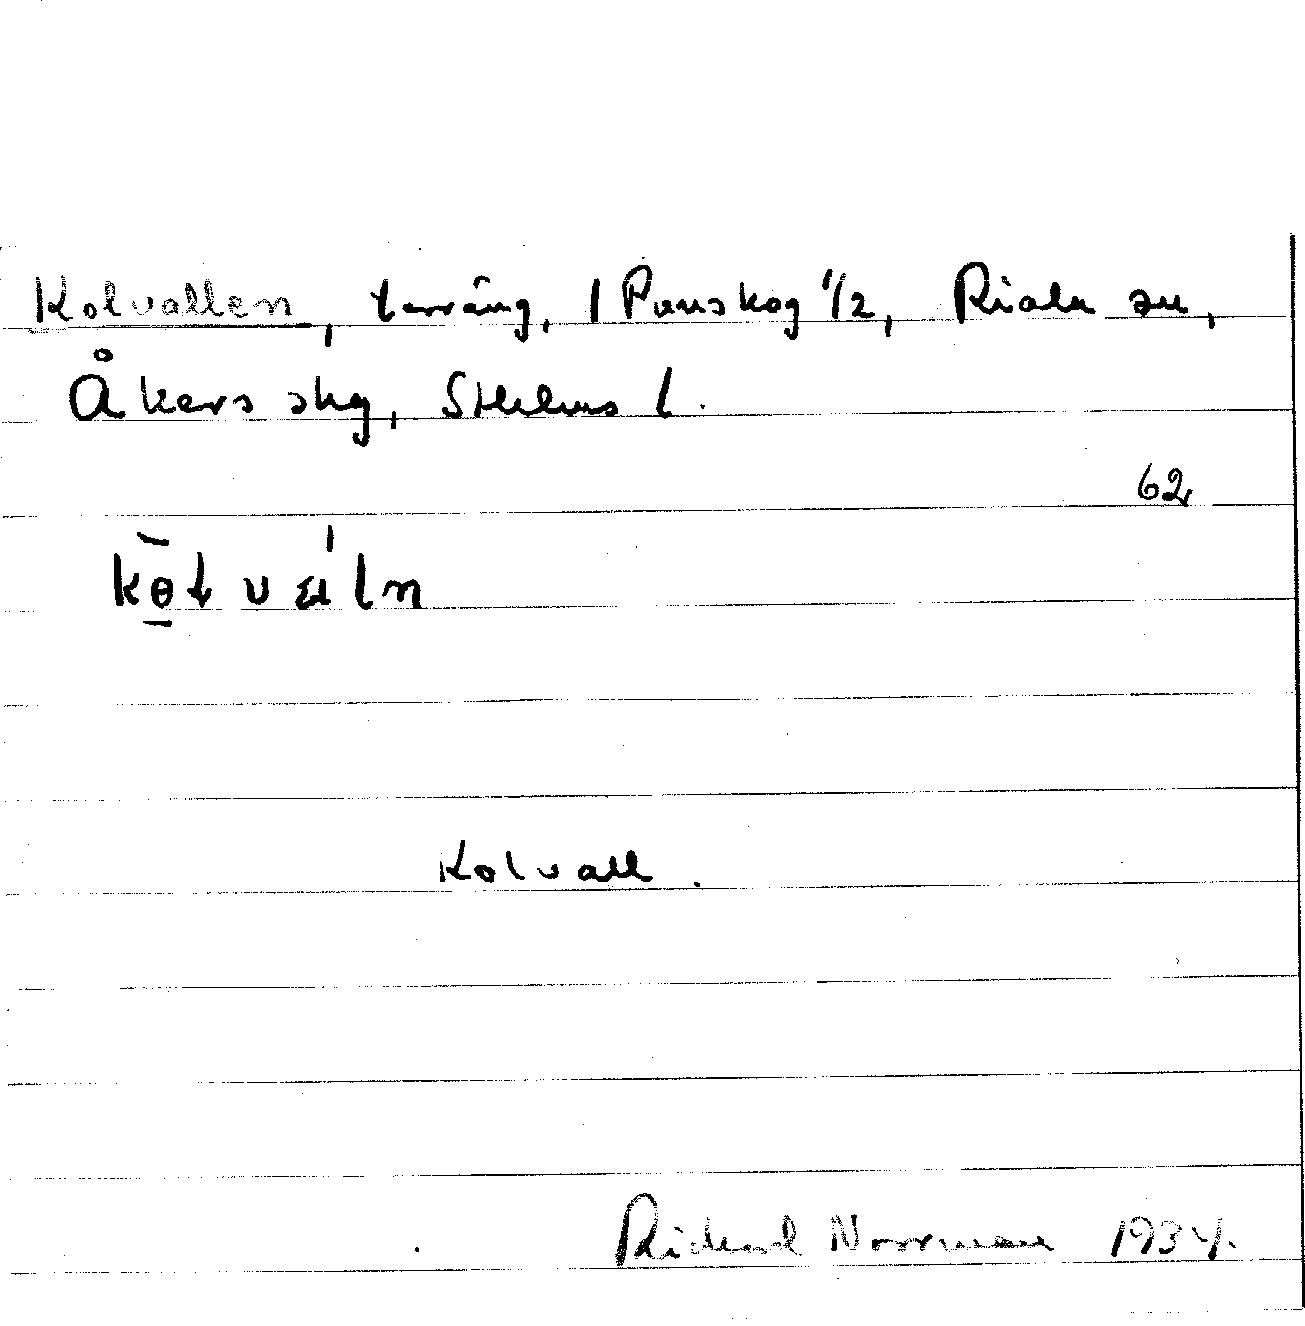 Kolvallen, terräng, 1 Panskog 1/2, Riala sn,
Åkers skg, Sthlms l.
62
Kolvall.
Richard Norrman 1934.